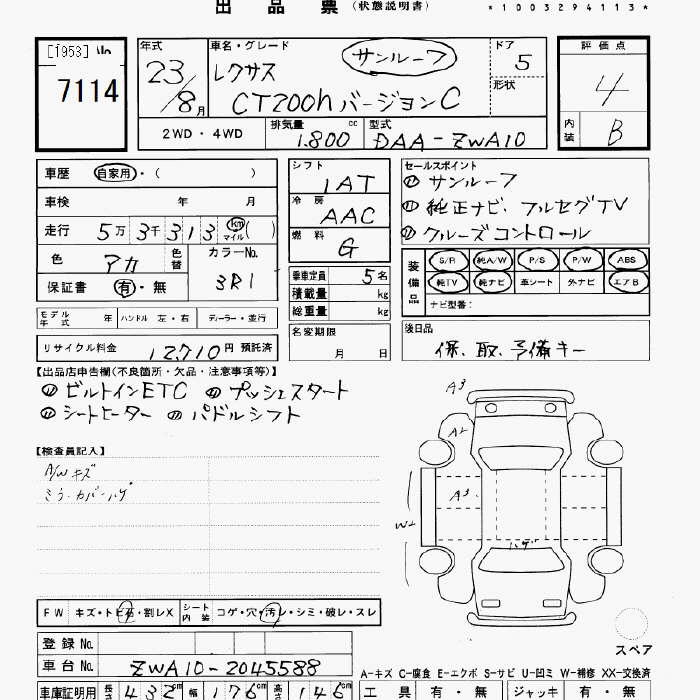 出 品 票 (状態説明書)
*1003294113*
[1953] No
7114
年式
23/8月
車名・グレード
サンルーフ
レクサス
CT200hバージョンC
ドア
5
形状
評価点
4
内装
B
2WD・4WD
排気量 1.800 cc
型式 DAA-ZWA10
車歴 自家用・( )
車検 年 月
走行 5万3千313 km マイル ( )
色 アカ 色替
カラーNo. 3R1
保証書 有・無
シフト 1AT
冷房 AAC
燃料 G
乗車定員 5名
積載量 kg
総重量 kg
名変期限 月 日
セールスポイント
① サンルーフ
① 純正ナビ、フルセグTV
① クルーズコントロール
装備品
S/R 純A/W P/S P/W ABS
純TV 純ナビ 革シート 外ナビ エアB
ナビ型番:
モデル年式 年 ハンドル 左・右 ディーラー・並行
リサイクル料金 12,710円 預託済
後日品
保、取、予備キー
【出品店申告欄(不良箇所・欠品・注意事項等)】
ビルトインETC プッシュスタート
シートヒーター パドルシフト
【検査員記入】
A/Wキズ
ミラーカバーハゲ
A3
A2
A3
W2
ハゲ
スペア
FW キズ・トビ石・割レX
シート内装 コゲ・穴・汚レ・シミ・破レ・スレ
登録No.
車台No. ZWA10-2045588
A-キズ C-腐食 E-エクボ S-サビ U-凹ミ W-補修 XX-交換済
車庫証明用 長さ 432cm 幅 176cm 高さ 145cm
工具 有・無 ジャッキ 有・無